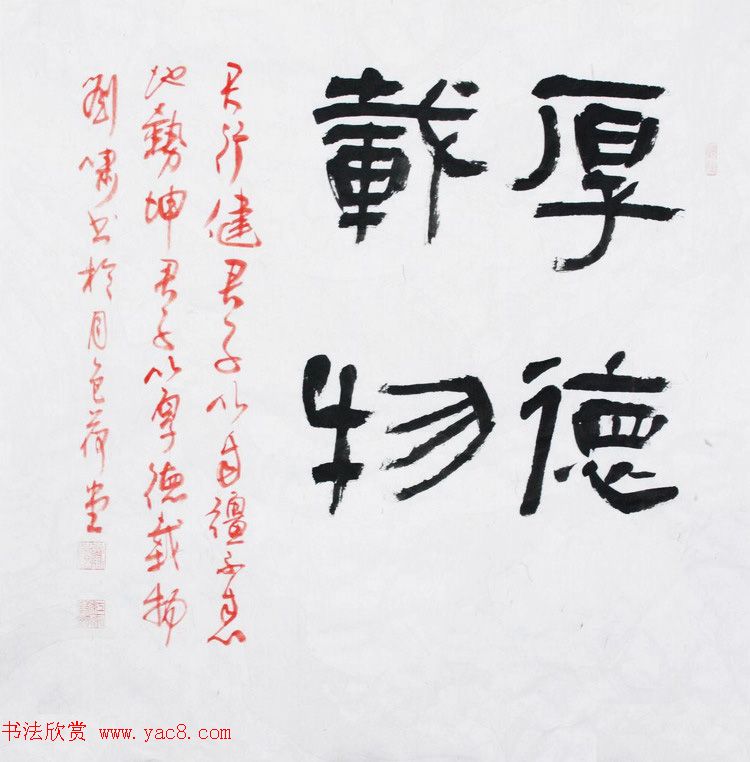 厚德
載物
天行健君子以自彊不息
地勢坤君子以厚德載物
劉嘯书於月色荷堂
书法欣赏 www.yac8.com